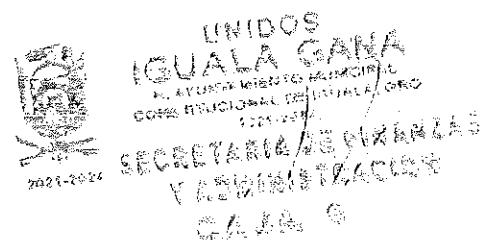 UNIDOS
IGUALA GANA
H. AYUNTAMIENTO MUNICIPAL
CONSTITUCIONAL DE IGUALA, GRO
2021-2024
SECRETARIA DE FINANZAS
Y ADMINISTRACION
CAJA
2021-2024